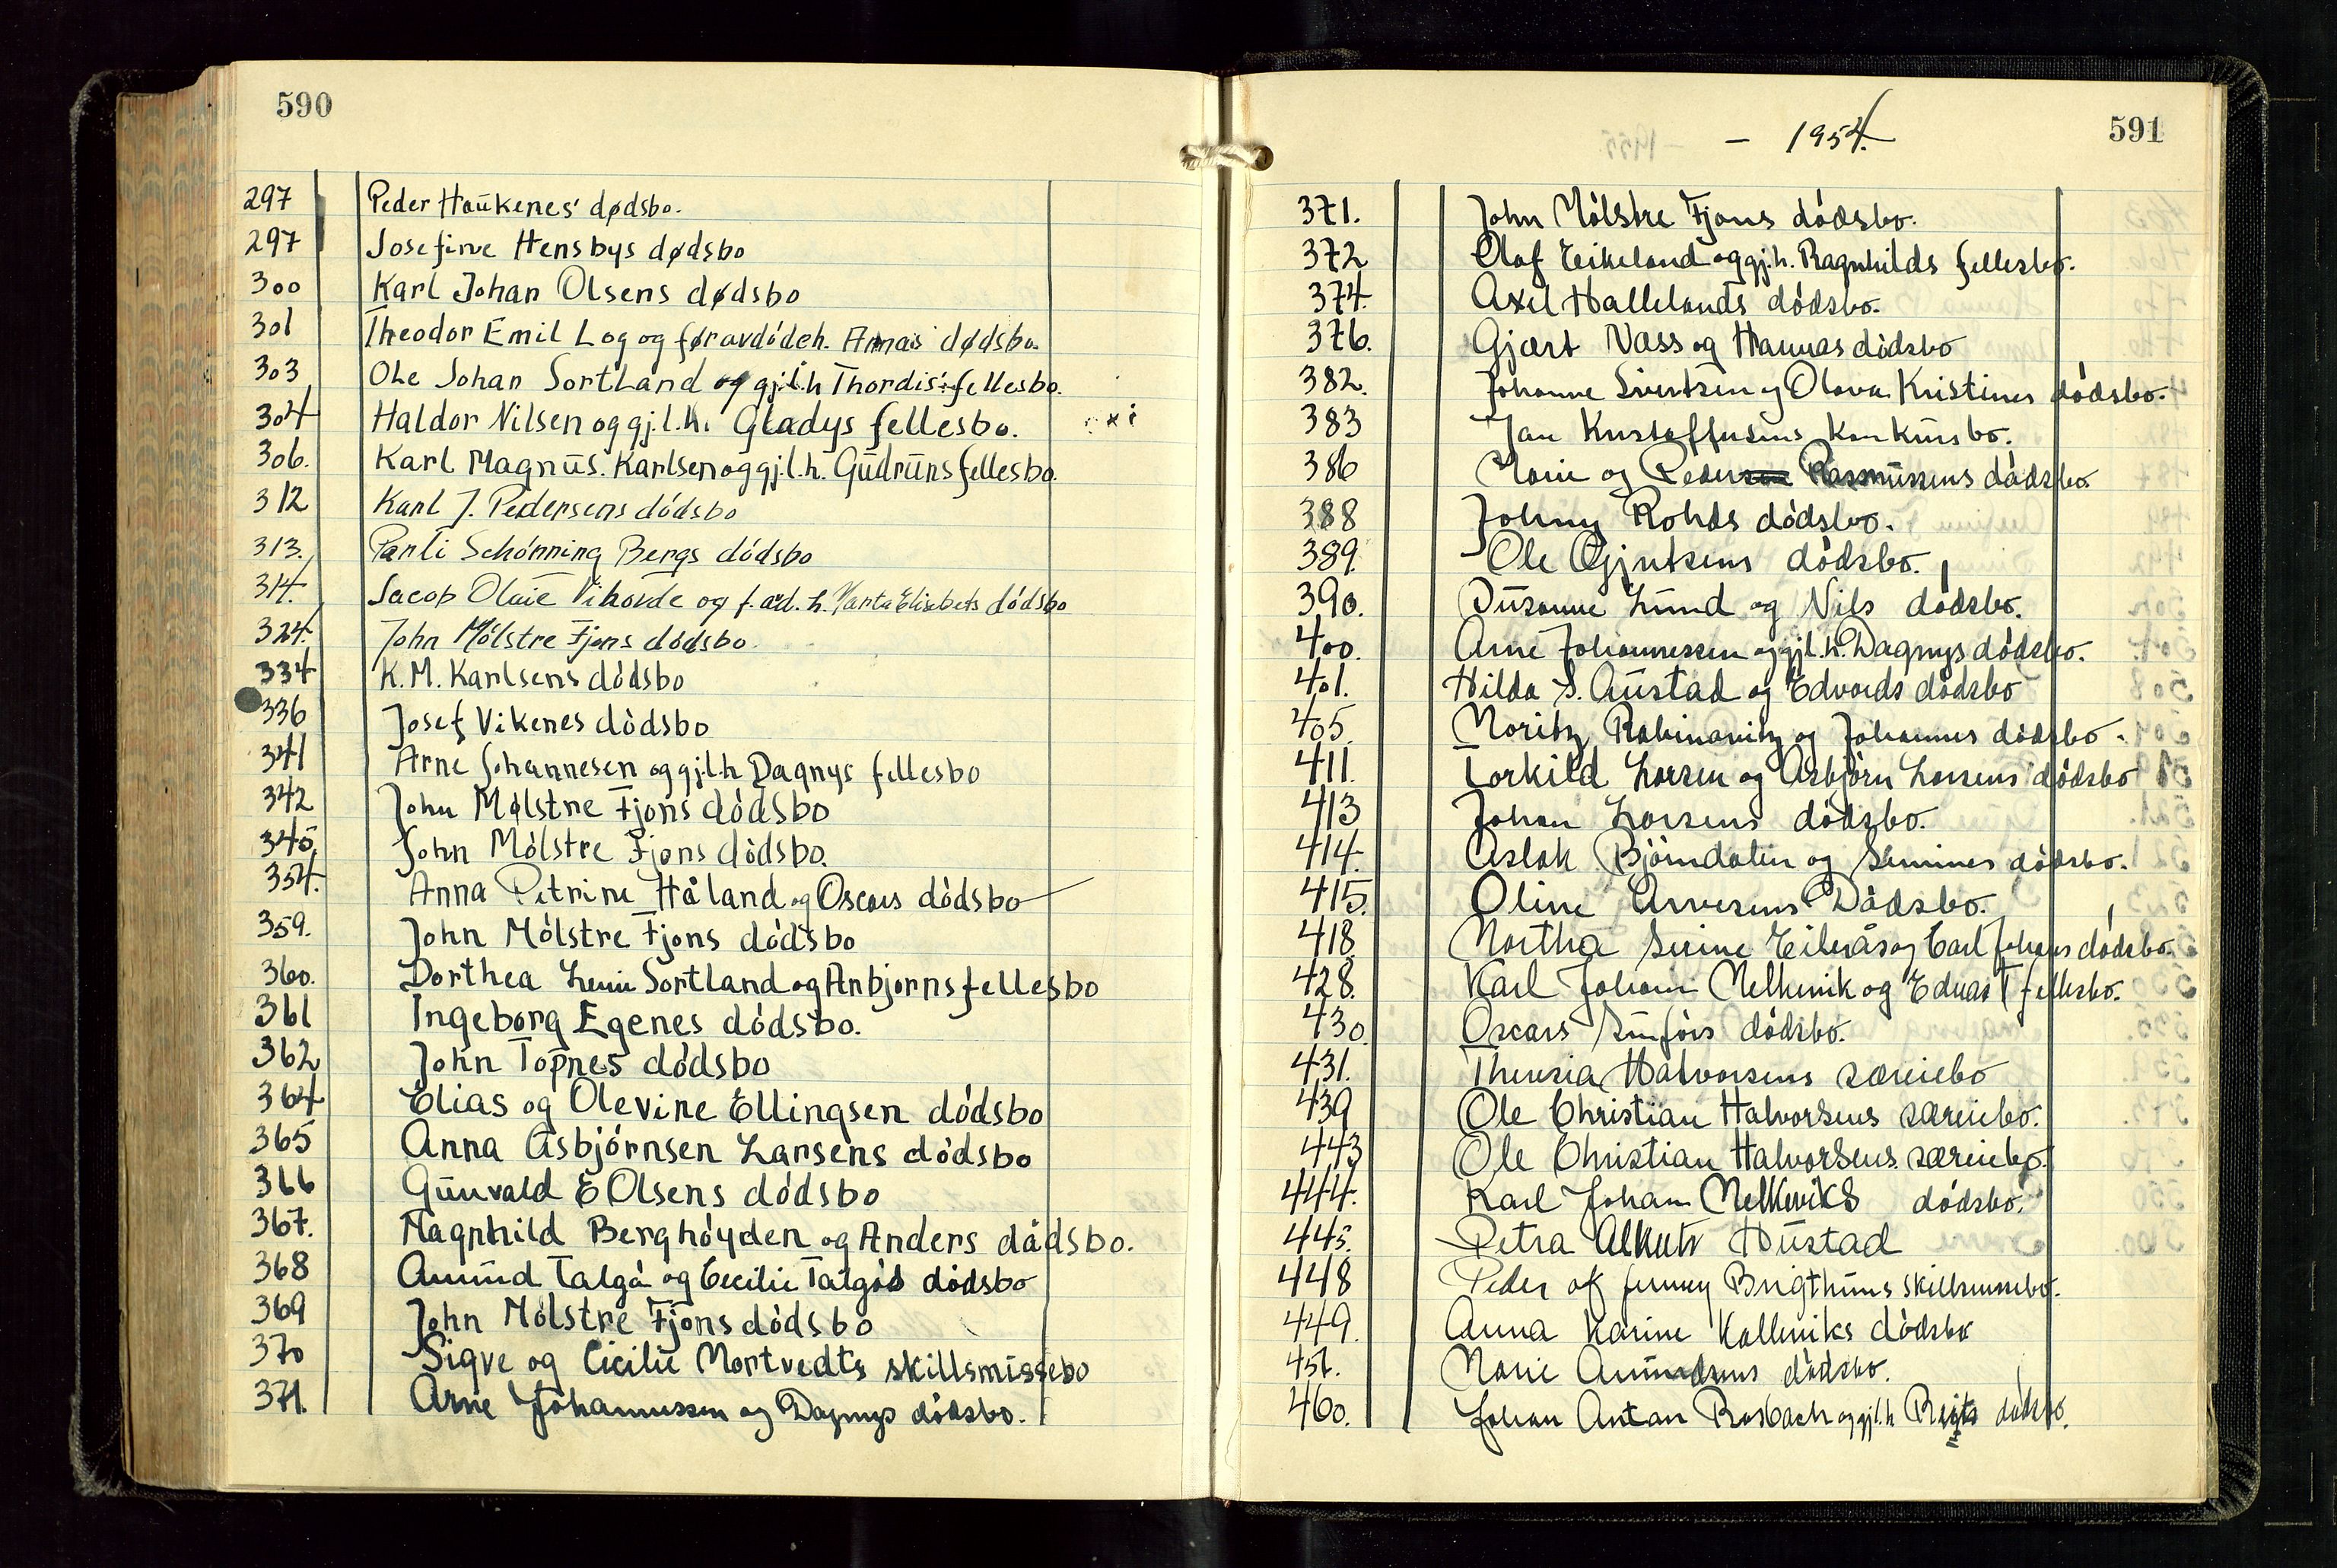 590
297 Peder Haukenes' dødsbo.
297 Josefine Hensbys dødsbo
300 Karl Johan Olsens dødsbo
301 Theodor Emil Log og føravdödeh. Annas dødsbo.
303 Ole Johan Sortland og gj.l.h Thordis' fellesbo.
304 Haldor Nilsen og gj.l.h. Gladys fellesbo.
306. Karl Magnus. Karlsen og gj.l.h. Gudruns fellesbo.
312 Karl J. Pedersens dödsbo
313. Schönning Bergs dödsbo
314. Jacob Olaie Vihovde og f.avd.h. Marta Elisabets dödsbo
324. John Mölstre Fjons dödsbo.
334 K.M. Karlsens dödsbo
336 Josef Vikenes dödsbo
341 Arne Johannesen og gj.l.h Dagnys fellesbo
342 John Mølstre Fjons dödsbo
345. John Mölstre Fjons dödsbo.
354. Anna Petrine Håland og Oscars dödsbo
359. John Mölstre Fjons dödsbo
360. Dorthea Leni Sortland og Anbjørns fellesbo
361 Ingeborg Egenes dödsbo.
362 John Topnes dödsbo
364 Elias og Olevine Ellingsen dödsbo
365 Anna Asbjörnsen Larsens dödsbo
366 Gunvald E Olsens dödsbo
367. Magnhild Berghöyden og Anders dödsbo.
368 Amund Talgö og Cecilie Talgös dödsbo
369 John Mölstre Fjons dödsbo
370 Sigve og Cicilie Mortvedts skillsmissebo
371. Arne Johannessen og Dagnys dödsbo.
591
- 1954.
371. John Mölstre Fjons dödsbo.
372 Olaf Eikeland og gj.h. Ragnhilds fellesbo.
374. Axel Hallelands dödsbo.
376. Gjært Næss og Hannas dödsbo
382. Johanne Sivertsen og Olava Kristines dödsbo.
383 Jan Kristoffersens konkursbo.
386 Marie og Peder Rasmussens dödsbo
388 Johny Rohds dödsbo.
389. Ole Gjertsens dödsbo.
390. Susanne Lund og Nils dödsbo.
400. Arne Johannessen og gj.l.h. Dagnys dödsbo.
401. Hilda S. Austad og Edvards dödsbo
405. Moritz Rabinowitz og Johannes dödsbo.
411. Torkild Larsen og Asbjörn Larsens dödsbo
413 Johan Larsens dödsbo.
414. Aslak Björndalen og Semines dödsbo.
415. Oline Arvesens Dödsbo.
418. Martha Serine Eikerås og Carl Johans dödsbo.
428. Karl Johan Melkevik og Ednas fellesbo.
430. Oscars Sunførs dödsbo.
431. Theresia Halvorsens særeiebo
439 Ole Christian Halvorsens særeiebo.
443 Ole Christian Halvorsens særeiebo.
444. Karl Johan Melkeviks dödsbo.
445. Petra Hustad
448 Peder og Jenny Brigthuns skillsmissebo.
449. Anna Karine Kalleviks dödsbo
451. Marie Amundsens dödsbo.
460. Johan Anton Rosbach og gj.l.h dödsbo.